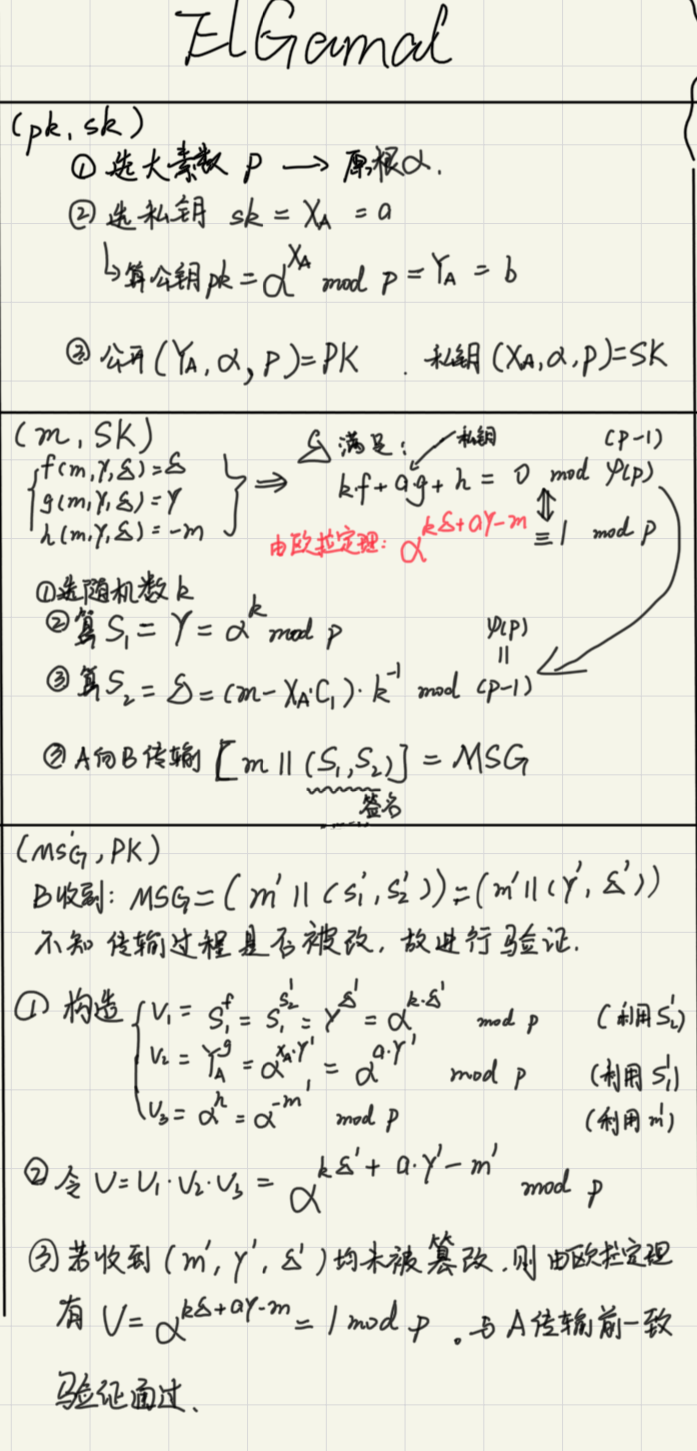 ElGamal
(pk, sk)
① 选大素数 p → 原根α.
② 选私钥 sk = X_A = a
↳ 算公钥 pk = α^{X_A} mod p = Y_A = b
③ 公开 (Y_A, α, p) = PK . 私钥 (X_A, α, p) = SK
(m, SK)
δ 满足: 私钥 (p-1)
f(m,γ,δ) = δ
g(m,γ,δ) = γ
h(m,γ,δ) = -m
⇒ kf + ag + h = 0 mod φ(p)
⇕
由欧拉定理: α^{kδ+aγ-m} ≡ 1 mod p
①选随机数 k
②算 S_1 = γ = α^k mod p
φ(p)
||
③算 S_2 = δ = (m - X_A·C_1)·k^{-1} mod (p-1)
③ A向B传输 [m || (S_1, S_2)] = MSG
签名
(MSG', PK)
B收到: MSG = (m' || (S_1', S_2')) = (m' || (γ', δ'))
不知传输过程是否被改, 故进行验证.
① 构造 { V_1 = S_1^f = S_1'^{S_2'} = γ^{δ'} = α^{k·δ'} mod p (利用S_2')
V_2 = Y_A^g = α^{X_A·γ'} = α^{a·γ'} mod p (利用S_1')
V_3 = α^h = α^{-m'} mod p (利用m')
② 令 V = V_1·V_2·V_3 = α^{kδ'+a·γ'-m'} mod p
③ 若收到 (m', γ', δ') 均未被篡改, 则由欧拉定理
有 V = α^{kδ+aγ-m} = 1 mod p 。与A传输前一致
验证通过、